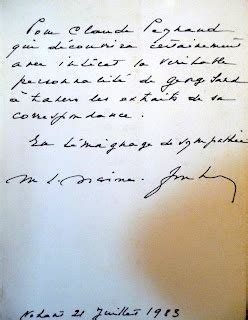 Pour Claude Peyraud
qui découvrira certainement
avec intérêt la véritable
personnalité de George Sand
à travers les extraits de sa
correspondance.
En témoignage de sympathie
Nohant 21 juillet 1983